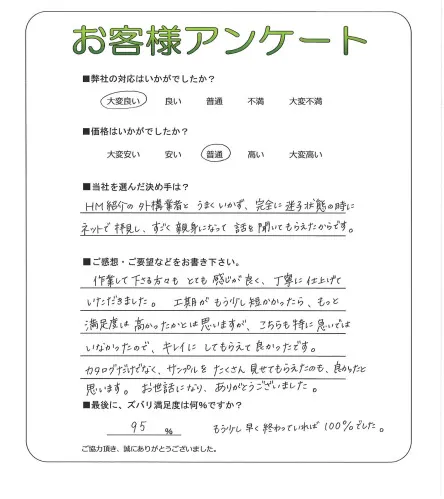 お客様アンケート
■弊社の対応はいかがでしたか？
大変良い 良い 普通 不満 大変不満
■価格はいかがでしたか？
大変安い 安い 普通 高い 大変高い
■当社を選んだ決め手は？
HM紹介の外構業者とうまくいかず、完全に迷子状態の時に
ネットで拝見し、すごく親身になって話を聞いてもらえたからです。
■ご感想・ご要望などをお書き下さい。
作業して下さる方々もとても感じが良く、丁寧に仕上げて
いただきました。工期がもう少し短かかったら、もっと
満足度は高かったかとは思いますが、こちらも特に急いでは
いなかったので、キレイにしてもらえて良かったです。
カタログだけでなく、サンプルをたくさん見せてもらえたのも、良かったと
思います。お世話になり、ありがとうございました。
■最後に、ズバリ満足度は何%ですか？
95 % もう少し早く終わっていれば100%でした。
ご協力頂き、誠にありがとうございました。